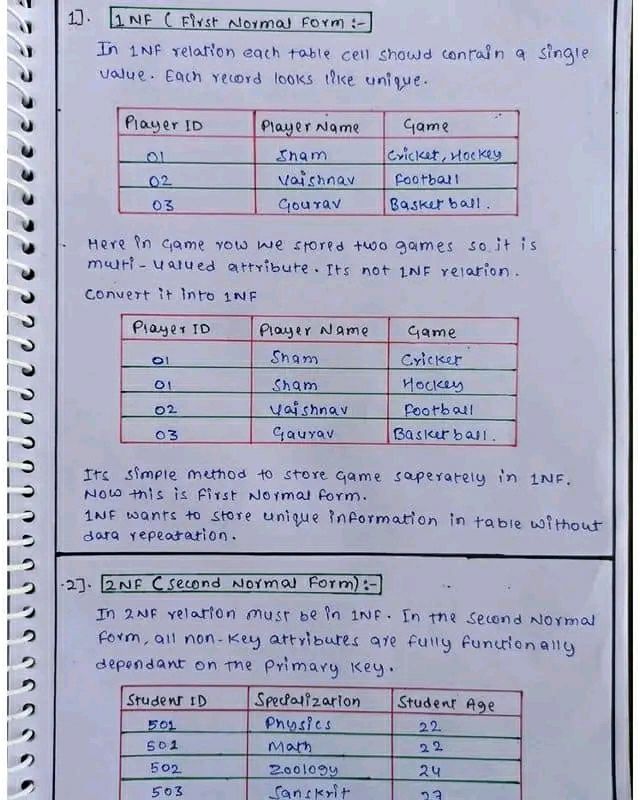 1]. 1NF ( First Normal Form :-
In 1NF relation each table cell showd contain a single
value. Each record looks like unique.
Player ID Player Name Game
01 Sham Cricket, Hockey
02 Vaishnav Football
03 Gourav Basketball.
Here in Game row we stored two games so it is
multi-valued attribute. Its not 1NF relation.
Convert it into 1NF
Player ID Player Name Game
01 Sham Cricket
01 Sham Hockey
02 Vaishnav Football
03 Gaurav Basketball.
Its simple method to store Game saperately in 1NF.
Now this is First Normal form.
1NF wants to store unique information in table without
data repeatation.
2]. 2NF (Second Normal Form) :-
In 2NF relation must be in 1NF. In the Second Normal
Form, all non-key attributes are fully functionally
dependant on the Primary key.
Student ID Specialization Student Age
501 Physics 22
501 Math 22
502 Zoology 24
503 Sanskrit 27